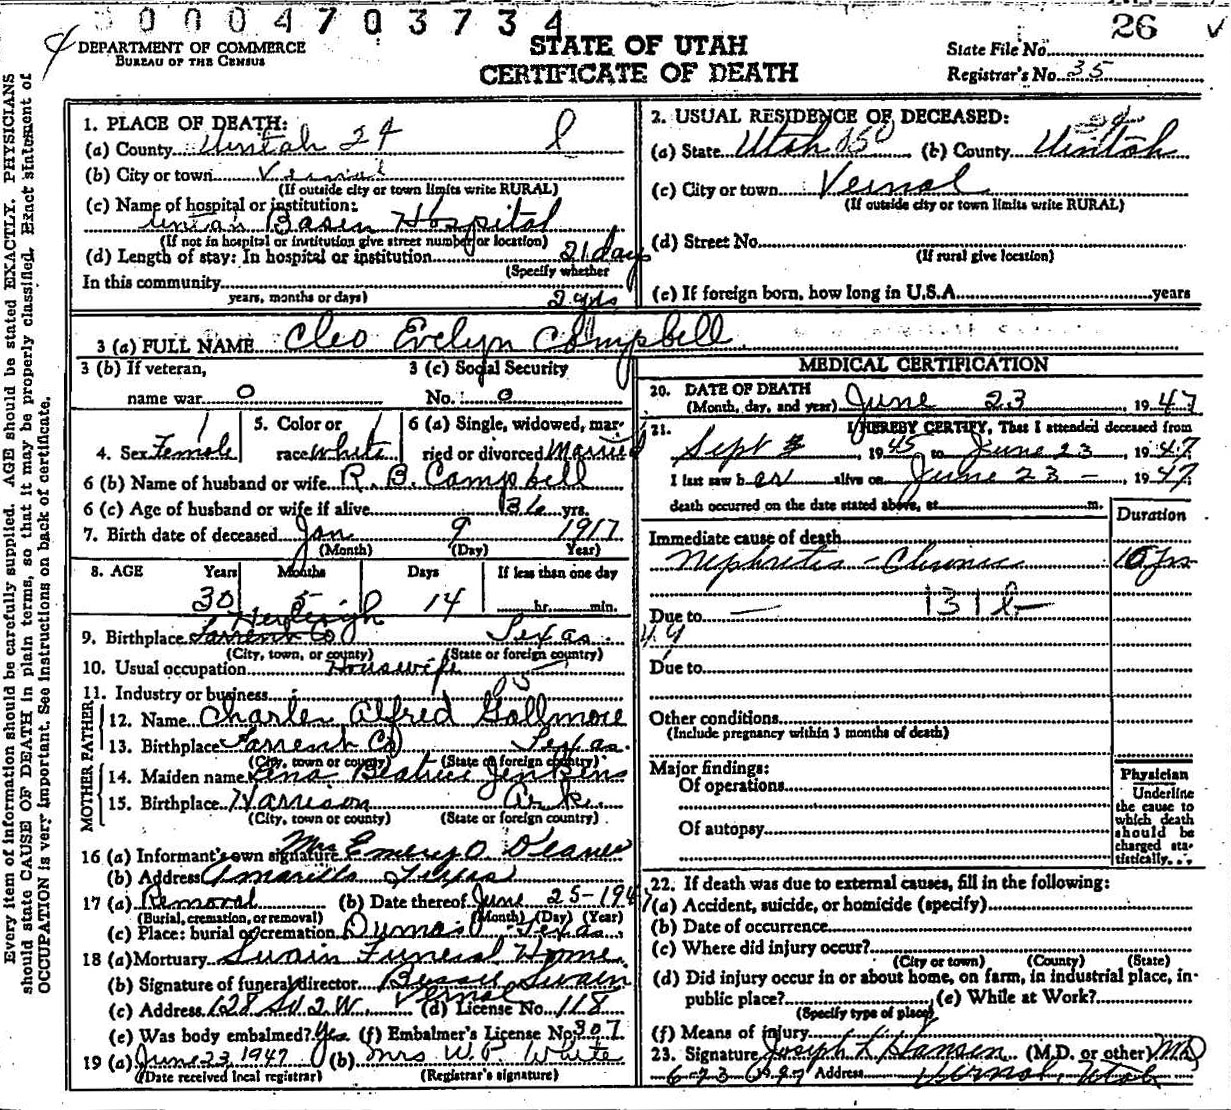 0004703734
26
DEPARTMENT OF COMMERCE
BUREAU OF THE CENSUS
STATE OF UTAH
CERTIFICATE OF DEATH
State File No.
Registrar's No. 35
Every item of information should be carefully supplied. AGE should be stated EXACTLY. PHYSICIANS
should state CAUSE OF DEATH in plain terms, so that it may be properly classified. Exact statement of
OCCUPATION is very important. See instructions on back of certificate.
1. PLACE OF DEATH:
(a) County Uintah 24
(b) City or town Vernal
(If outside city or town limits write RURAL)
(c) Name of hospital or institution:
Uintah Basin Hospital
(If not in hospital or institution give street number or location)
(d) Length of stay: In hospital or institution 21 days
(Specify whether
In this community 2 yrs
years, months or days)
2. USUAL RESIDENCE OF DECEASED:
(a) State Utah 850 (b) County Uintah
(c) City or town Vernal
(If outside city or town limits write RURAL)
(d) Street No.
(If rural give location)
(e) If foreign born, how long in U.S.A. years
3 (a) FULL NAME Cleo Evelyn Campbell
3 (b) If veteran,
name war 0
3 (c) Social Security
No. 0
4. Sex Female
5. Color or
race White
6 (a) Single, widowed, mar-
ried or divorced Married
6 (b) Name of husband or wife R. B. Campbell
6 (c) Age of husband or wife if alive 36 yrs.
7. Birth date of deceased Jan 9 1917
(Month) (Day) Year)
8. AGE Years Months Days If less than one day
30 5 14 hr. min.
9. Birthplace Tarrent Co Texas
(City, town, or county) (State or foreign country)
10. Usual occupation Housewife
11. Industry or business
FATHER
12. Name Charles Alfred Gallmore
13. Birthplace Tarrent Co Texas
(City, town or county) (State or foreign country)
MOTHER
14. Maiden name Lena Beatrice Jenkins
15. Birthplace Harrison Ark.
(City, town or county) (State or foreign country)
16 (a) Informant's own signature Mrs Emery O. Deaner
(b) Address Amarillo Texas
17 (a) Removal (b) Date thereof June 25-1947
(Burial, cremation, or removal) (Month) (Day) (Year)
(c) Place: burial or cremation Dumas Texas
18 (a) Mortuary Swain Funeral Home
(b) Signature of funeral director Bessie Swain
(c) Address 128 So 2 W. Vernal (d) License No. 118
(e) Was body embalmed? Yes (f) Embalmer's License No 307
19 (a) June 23, 1947 (b) Mrs W. P. White
(Date received local registrar) (Registrar's signature)
MEDICAL CERTIFICATION
20. DATE OF DEATH
(Month, day, and year) June 23 1947
21. I HEREBY CERTIFY, That I attended deceased from
Sept 1945 to June 23, 1947
I last saw her alive on June 23 - , 1947
death occurred on the date stated above, at m.
Duration
Immediate cause of death
Nephritis - Chronic 10 yrs
Due to — 131b
Due to
Other conditions
(Include pregnancy within 3 months of death)
Major findings:
Of operations
Of autopsy
Physician
Underline
the cause to
which death
should be
charged sta-
tistically.
22. If death was due to external causes, fill in the following:
(a) Accident, suicide, or homicide (specify)
(b) Date of occurrence
(c) Where did injury occur?
(City or town) (County) (State)
(d) Did injury occur in or about home, on farm, in industrial place, in-
public place? (e) While at Work?
(Specify type of place)
(f) Means of injury
23. Signature Joseph L Hansen (M.D. or other) MD
6-23 1947 Address Vernal, Utah